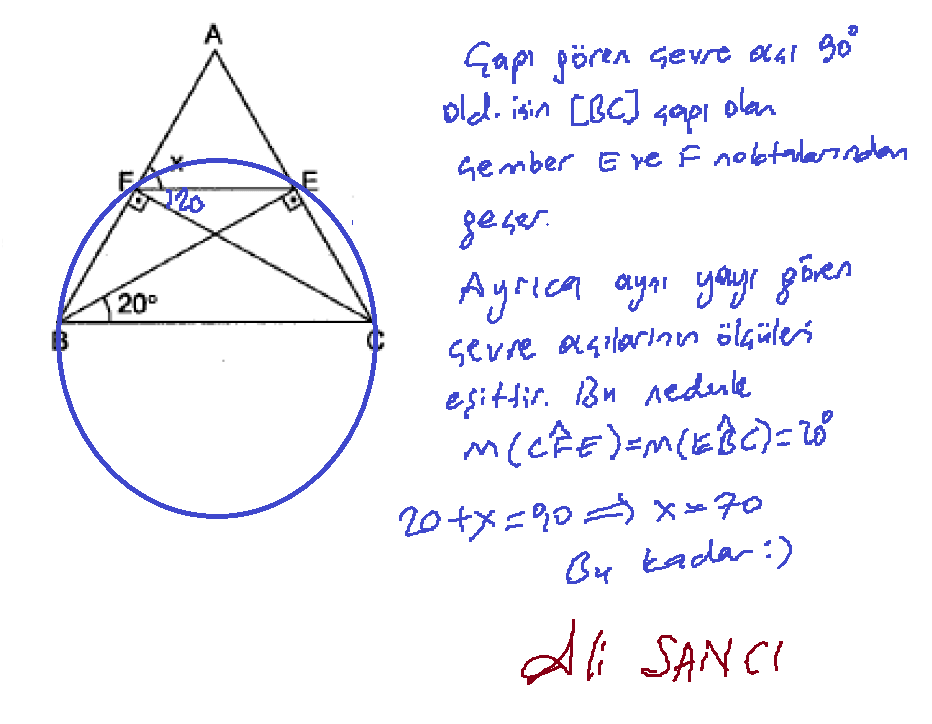 A
x
F
E
20
20°
B
C
Çapı gören çevre açı 90°
old. için [BC] çapı olan
çember E ve F noktalarından
geçer.
Ayrıca aynı yayı gören
çevre açılarının ölçüleri
eşittir. Bu nedenle
m(CF̂E)=m(EB̂C)=20°
20+x=90⇒x=70
Bu kadar :)
Ali SANCI